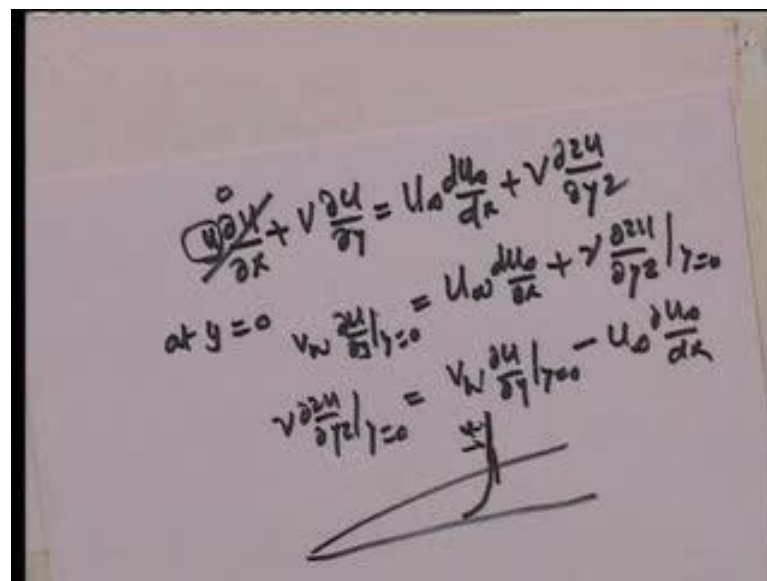 0
u ∂u/∂x + v ∂u/∂y = U∞ dU∞/dx + ν ∂2u/∂y2
at y=0 vw ∂u/∂y|y=0 = U∞ dU∞/∂x + ν ∂2u/∂y2|y=0
ν ∂2u/∂y2|y=0 = vw ∂u/∂y|y=0 - U∞ ∂U∞/dx